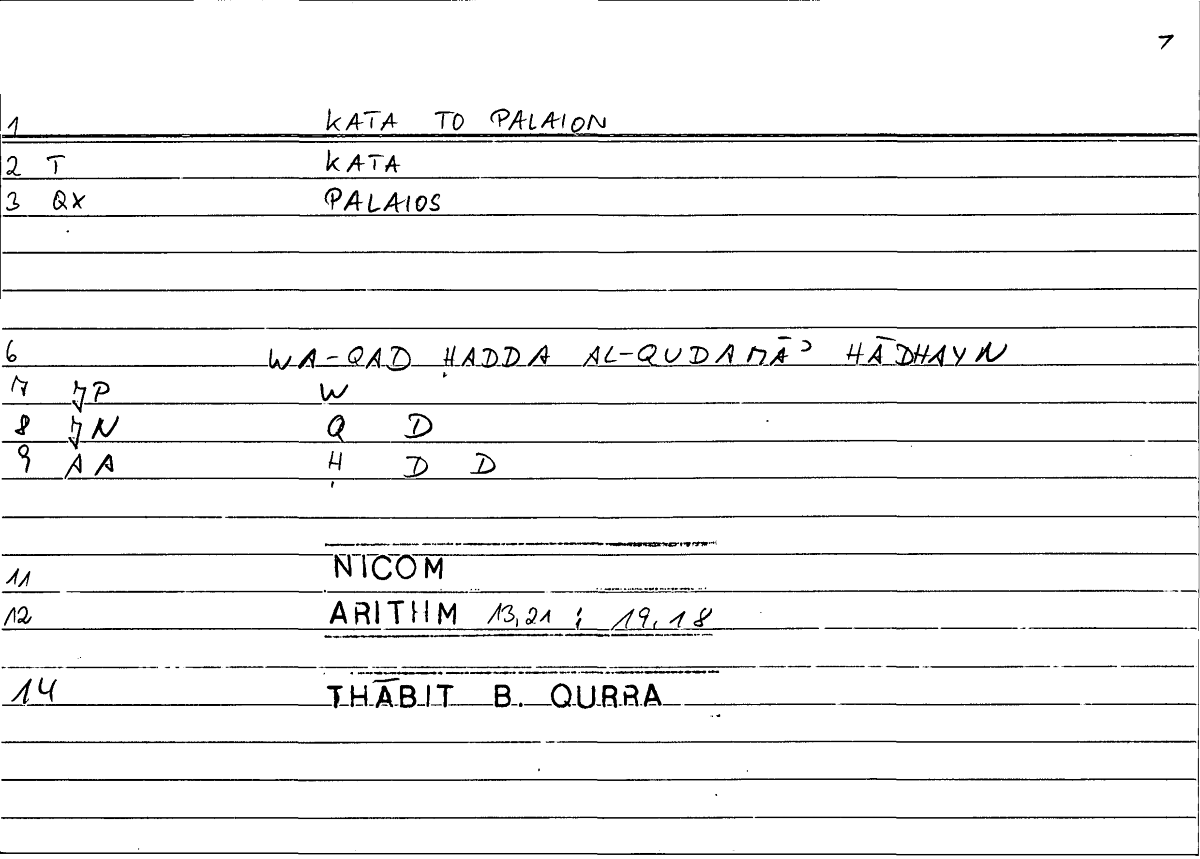 7
1 KATA TO PALAION
2 T KATA
3 QX PALAIOS
6 WA-QAD ḤADDA AL-QUDAMĀʾ HĀDHAYN
7 JP W
8 JN Q D
9 AA Ḥ D D
11 NICOM
12 ARITHM 13,21 ; 19,18
14 THĀBIT B. QURRA